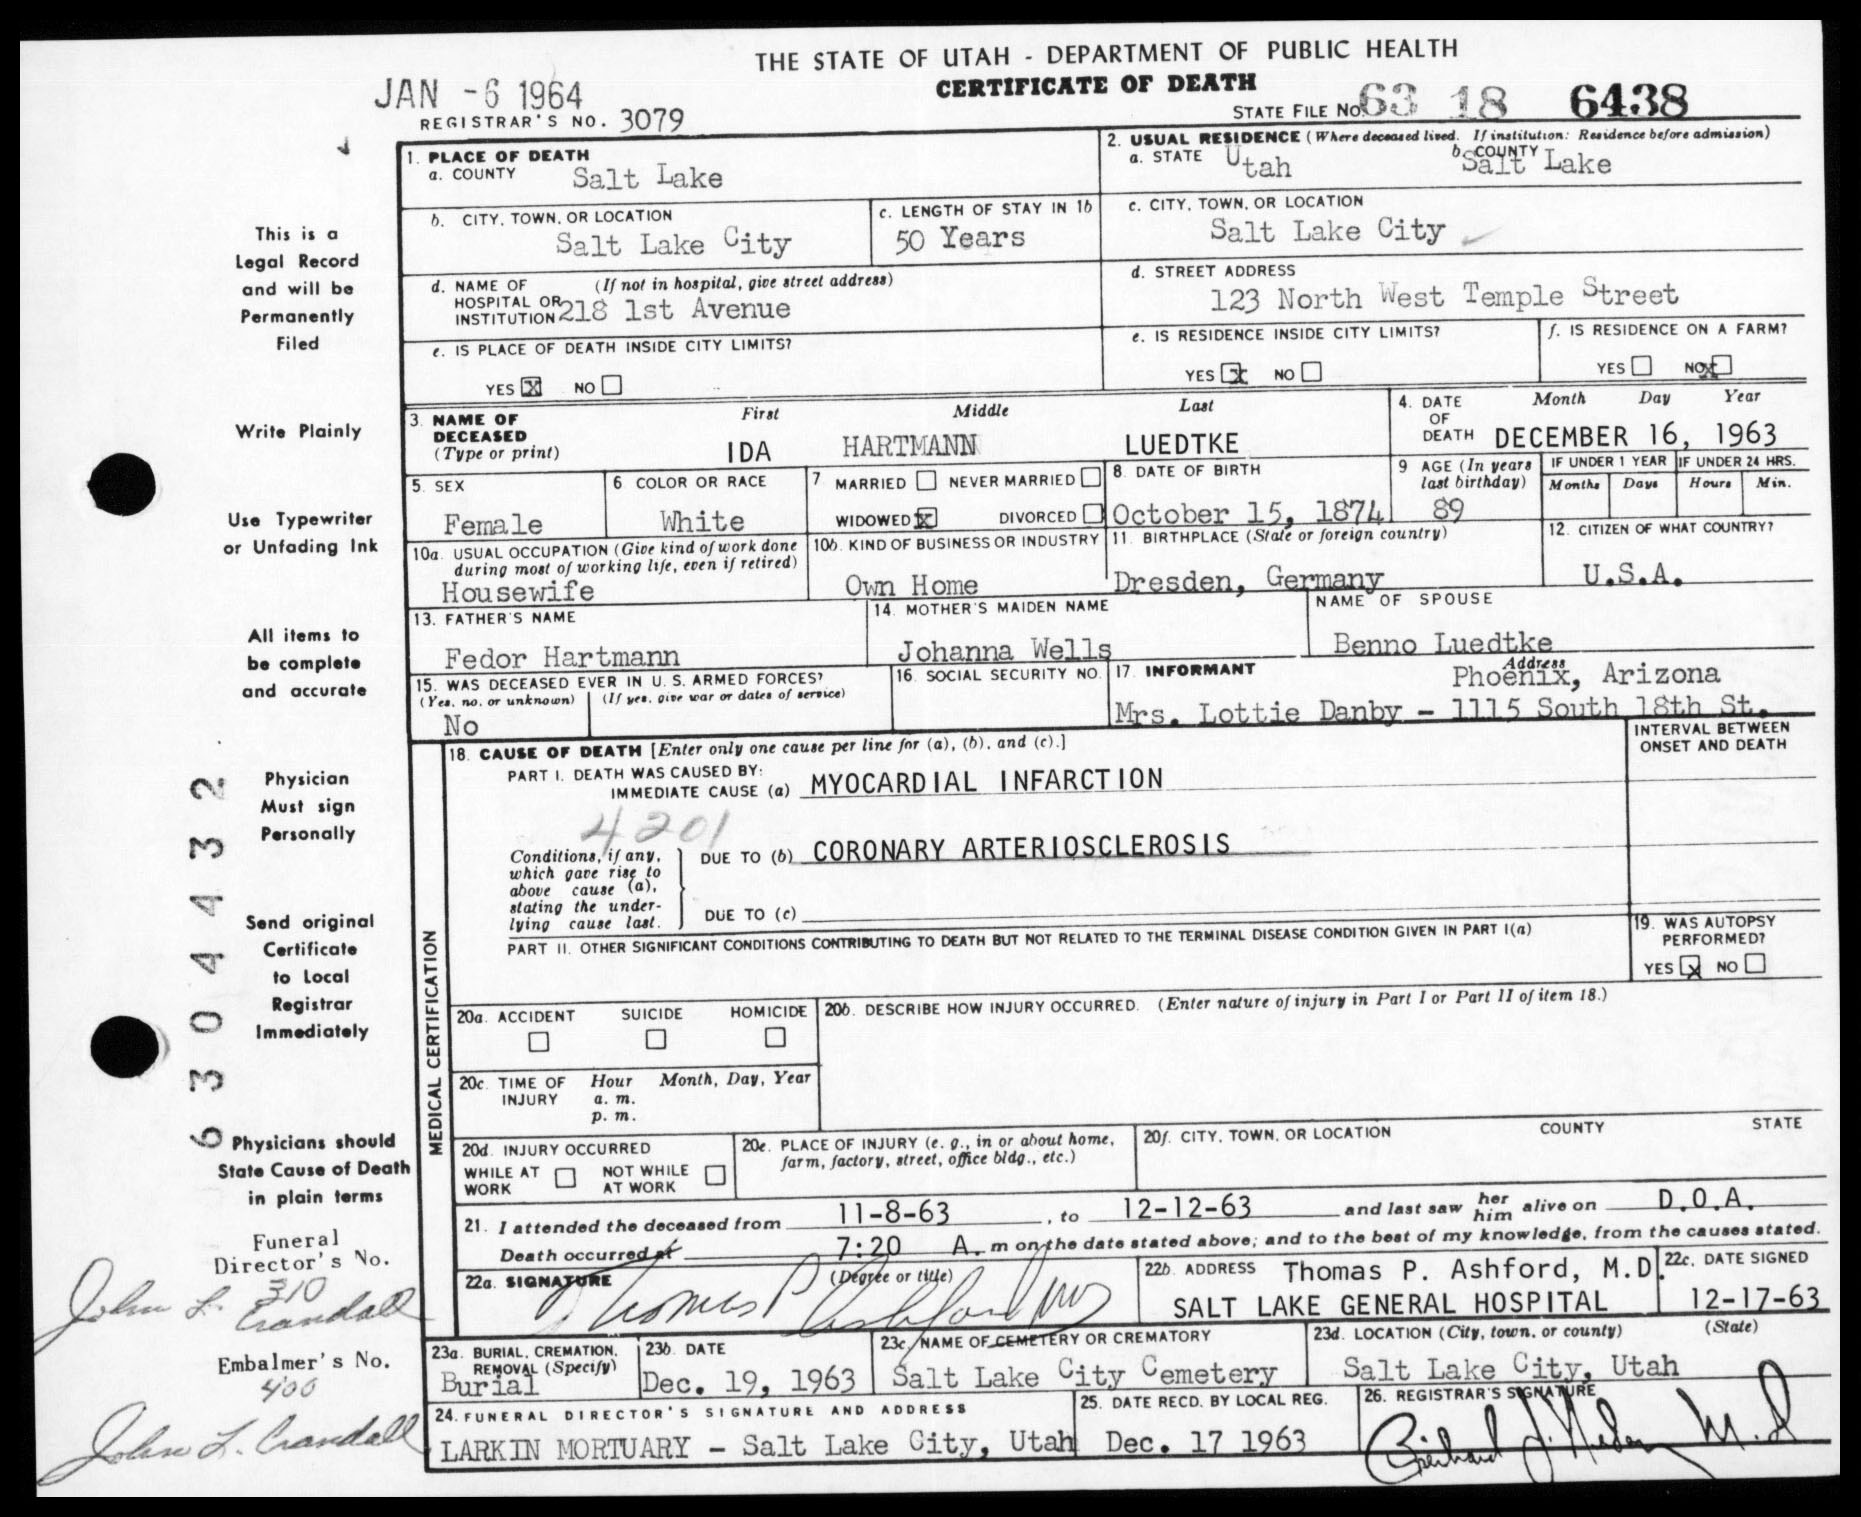 THE STATE OF UTAH - DEPARTMENT OF PUBLIC HEALTH
CERTIFICATE OF DEATH
JAN -6 1964
REGISTRAR'S NO. 3079
STATE FILE NO. 63 18 6438
1. PLACE OF DEATH
a. COUNTY Salt Lake
2. USUAL RESIDENCE (Where deceased lived. If institution: Residence before admission)
a. STATE Utah b. COUNTY Salt Lake
b. CITY, TOWN, OR LOCATION
Salt Lake City
c. LENGTH OF STAY IN 1b
50 Years
c. CITY, TOWN, OR LOCATION
Salt Lake City
d. NAME OF HOSPITAL OR INSTITUTION (If not in hospital, give street address)
218 1st Avenue
d. STREET ADDRESS
123 North West Temple Street
e. IS PLACE OF DEATH INSIDE CITY LIMITS?
YES X NO
e. IS RESIDENCE INSIDE CITY LIMITS?
YES X NO
f. IS RESIDENCE ON A FARM?
YES NO X
3. NAME OF DECEASED (Type or print)
First Middle Last
IDA HARTMANN LUEDTKE
4. DATE OF DEATH Month Day Year
DECEMBER 16, 1963
5. SEX
Female
6. COLOR OR RACE
White
7. MARRIED NEVER MARRIED
WIDOWED X DIVORCED
8. DATE OF BIRTH
October 15, 1874
9 AGE (In years last birthday)
89
IF UNDER 1 YEAR
Months Days
IF UNDER 24 HRS.
Hours Min.
10a. USUAL OCCUPATION (Give kind of work done during most of working life, even if retired)
Housewife
10b. KIND OF BUSINESS OR INDUSTRY
Own Home
11. BIRTHPLACE (State or foreign country)
Dresden, Germany
12. CITIZEN OF WHAT COUNTRY?
U.S.A.
13. FATHER'S NAME
Fedor Hartmann
14. MOTHER'S MAIDEN NAME
Johanna Wells
NAME OF SPOUSE
Benno Luedtke
15. WAS DECEASED EVER IN U. S. ARMED FORCES?
(Yes, no, or unknown) (If yes, give war or dates of service)
No
16. SOCIAL SECURITY NO.
17. INFORMANT Address
Phoenix, Arizona
Mrs. Lottie Danby - 1115 South 18th St.
18. CAUSE OF DEATH [Enter only one cause per line for (a), (b), and (c).]
INTERVAL BETWEEN ONSET AND DEATH
PART I. DEATH WAS CAUSED BY:
IMMEDIATE CAUSE (a) MYOCARDIAL INFARCTION
4201
Conditions, if any, which gave rise to above cause (a), stating the underlying cause last.
DUE TO (b) CORONARY ARTERIOSCLEROSIS
DUE TO (c)
PART II. OTHER SIGNIFICANT CONDITIONS CONTRIBUTING TO DEATH BUT NOT RELATED TO THE TERMINAL DISEASE CONDITION GIVEN IN PART I(a)
19. WAS AUTOPSY PERFORMED?
YES X NO
MEDICAL CERTIFICATION
20a. ACCIDENT SUICIDE HOMICIDE
20b. DESCRIBE HOW INJURY OCCURRED. (Enter nature of injury in Part I or Part II of item 18.)
20c. TIME OF INJURY Hour Month, Day, Year
a. m.
p. m.
20d. INJURY OCCURRED
WHILE AT WORK NOT WHILE AT WORK
20e. PLACE OF INJURY (e. g., in or about home, farm, factory, street, office bldg., etc.)
20f. CITY, TOWN, OR LOCATION COUNTY STATE
21. I attended the deceased from 11-8-63, to 12-12-63 and last saw her him alive on D.O.A.
Death occurred at 7:20 A. m on the date stated above; and to the best of my knowledge, from the causes stated.
22a. SIGNATURE (Degree or title)
Thomas P Ashford MD
22b. ADDRESS Thomas P. Ashford, M.D.
SALT LAKE GENERAL HOSPITAL
22c. DATE SIGNED
12-17-63
23a. BURIAL, CREMATION, REMOVAL (Specify)
Burial
23b. DATE
Dec. 19, 1963
23c. NAME OF CEMETERY OR CREMATORY
Salt Lake City Cemetery
23d. LOCATION (City, town, or county) (State)
Salt Lake City, Utah
24. FUNERAL DIRECTOR'S SIGNATURE AND ADDRESS
LARKIN MORTUARY - Salt Lake City, Utah
25. DATE RECD. BY LOCAL REG.
Dec. 17 1963
26. REGISTRAR'S SIGNATURE
M.D
This is a
Legal Record
and will be
Permanently
Filed
Write Plainly
Use Typewriter
or Unfading Ink
All items to
be complete
and accurate
Physician
Must sign
Personally
Send original
Certificate
to Local
Registrar
Immediately
Physicians should
State Cause of Death
in plain terms
6304432
Funeral
Director's No.
310
John L. Crandall
Embalmer's No.
400
John L. Crandall